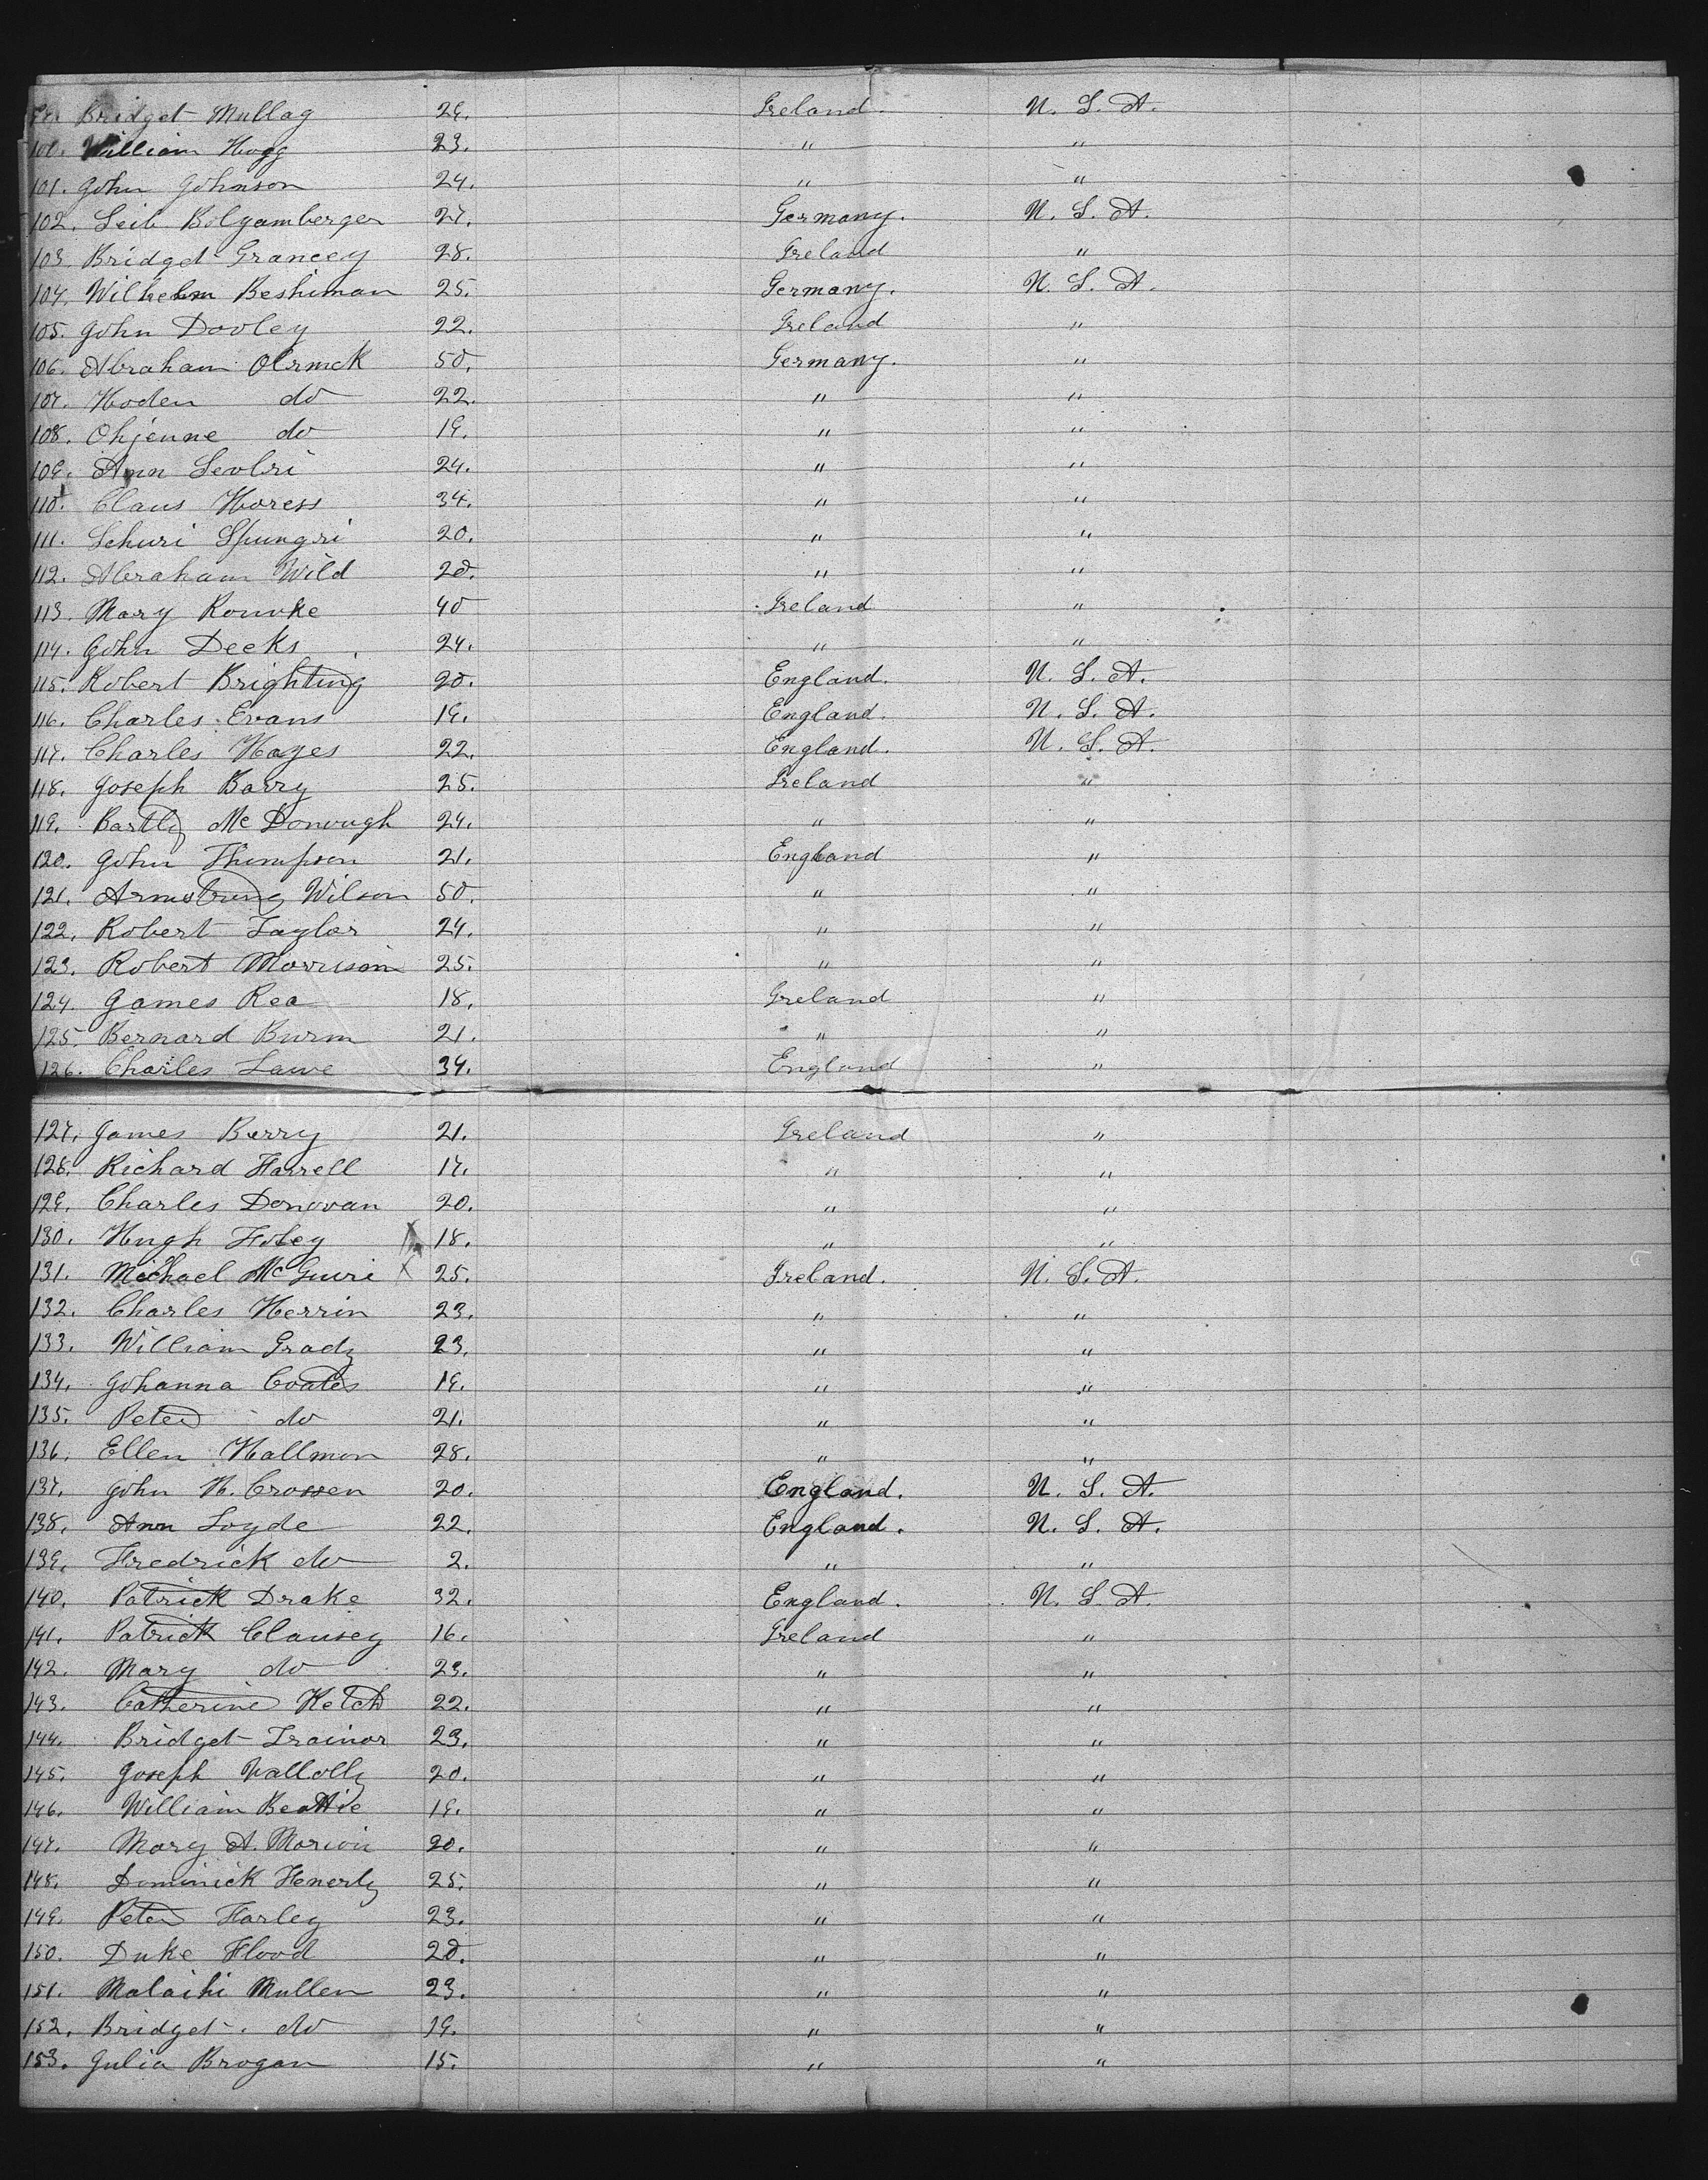 99. Bridget Mullag 29. Ireland. U. S. A.
100. William Hogg 23. " "
101. John Johnson 24. " "
102. Leib Bolgamberger 27. Germany. U. S. A.
103. Bridget Grancey 28. Ireland "
104. Wilhelm Beshiman 25. Germany. U. S. A.
105. John Dooley 22. Ireland "
106. Abraham Olrmck 50. Germany. "
107. Hoden do 22. " "
108. Ohjenne do 19. " "
109. Ann Seolri 24. " "
110. Claus Horess 34. " "
111. Schuri Spungri 20. " "
112. Abraham Wild 20. " "
113. Mary Rourke 40 Ireland "
114. John Deeks 24. " "
115. Robert Brighting 20. England. U. S. A.
116. Charles Evans 19. England. U. S. A.
117. Charles Hayes 22. England. U. S. A.
118. Joseph Barry 25. Ireland "
119. Bartly Mc Donough 24. " "
120. John Thompson 21. England "
121. Armstrong Wilson 50. " "
122. Robert Taylor 24. " "
123. Robert Morrison 25. " "
124. James Rea 18. Ireland "
125. Bernard Burm 21. " "
126. Charles Lawe 34. England "
127. James Berry 21. Ireland "
128. Richard Farrell 17. " "
129. Charles Donovan 20. " "
130. Hugh Foley 18. " "
131. Michael McGuire X 25. Ireland. U. S. A.
132. Charles Herrin 23. " "
133. William Grady 23. " "
134. Johanna Coates 19. " "
135. Peter do 21. " "
136. Ellen Hallmon 28. " "
137. John H. Crossen 20. England. U. S. A.
138. Ann Loyde 22. England. U. S. A.
139. Fredrick do 2. " "
140. Patrick Drake 32. England. U. S. A.
141. Patrick Clansey 16. Ireland "
142. Mary do 23. " "
143. Catherine Ketch 22. " "
144. Bridget Trainor 23. " "
145. Joseph Nallolly 20. " "
146. William Beattie 19. " "
147. Mary A. Morwin 20. " "
148. Dominick Henerty 25. " "
149. Peter Farley 23. " "
150. Duke Flood 20. " "
151. Malachi Mullen 23. " "
152. Bridget. do 19. " "
153. Julia Brogan 15. " "